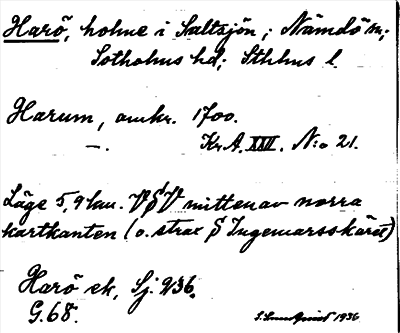 Harö, holme i Saltsjön; Nämdö sn;
Sotholms hd; Sthlms l.
Harum, omkr. 1700.
—. Kr.A. XXII. N:o 21.
Läge 5,9 km. VSV mitten av norra
kartkanten (o. strax S Ingemarsskäret)
Harö ek, Sj. 936.
G.68. 1936